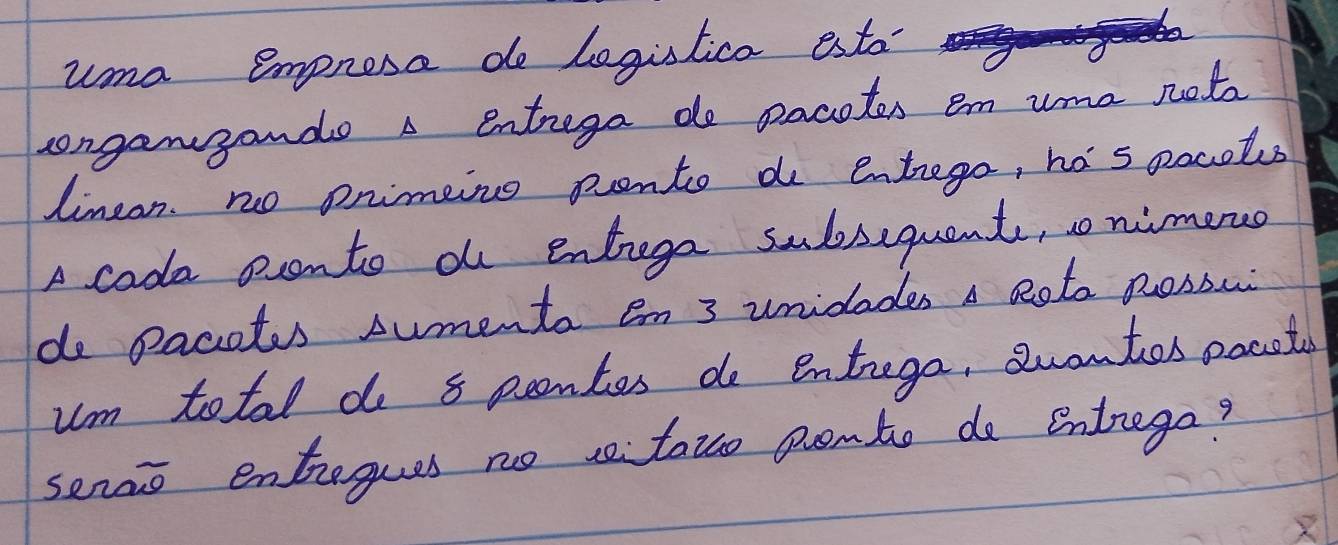 uma empresa de logistica está
organizando A entrega de pacotes em uma rota
linear. no primeiro ponto de entrega, há 5 pacotes
A cada ponto de entrega subsequente, o número
de pacotes Aumenta em 3 unidades A Rota possui
um total de 8 pontos de entrega. Quantos pacotes
serão entregues no oitavo ponto de entrega?